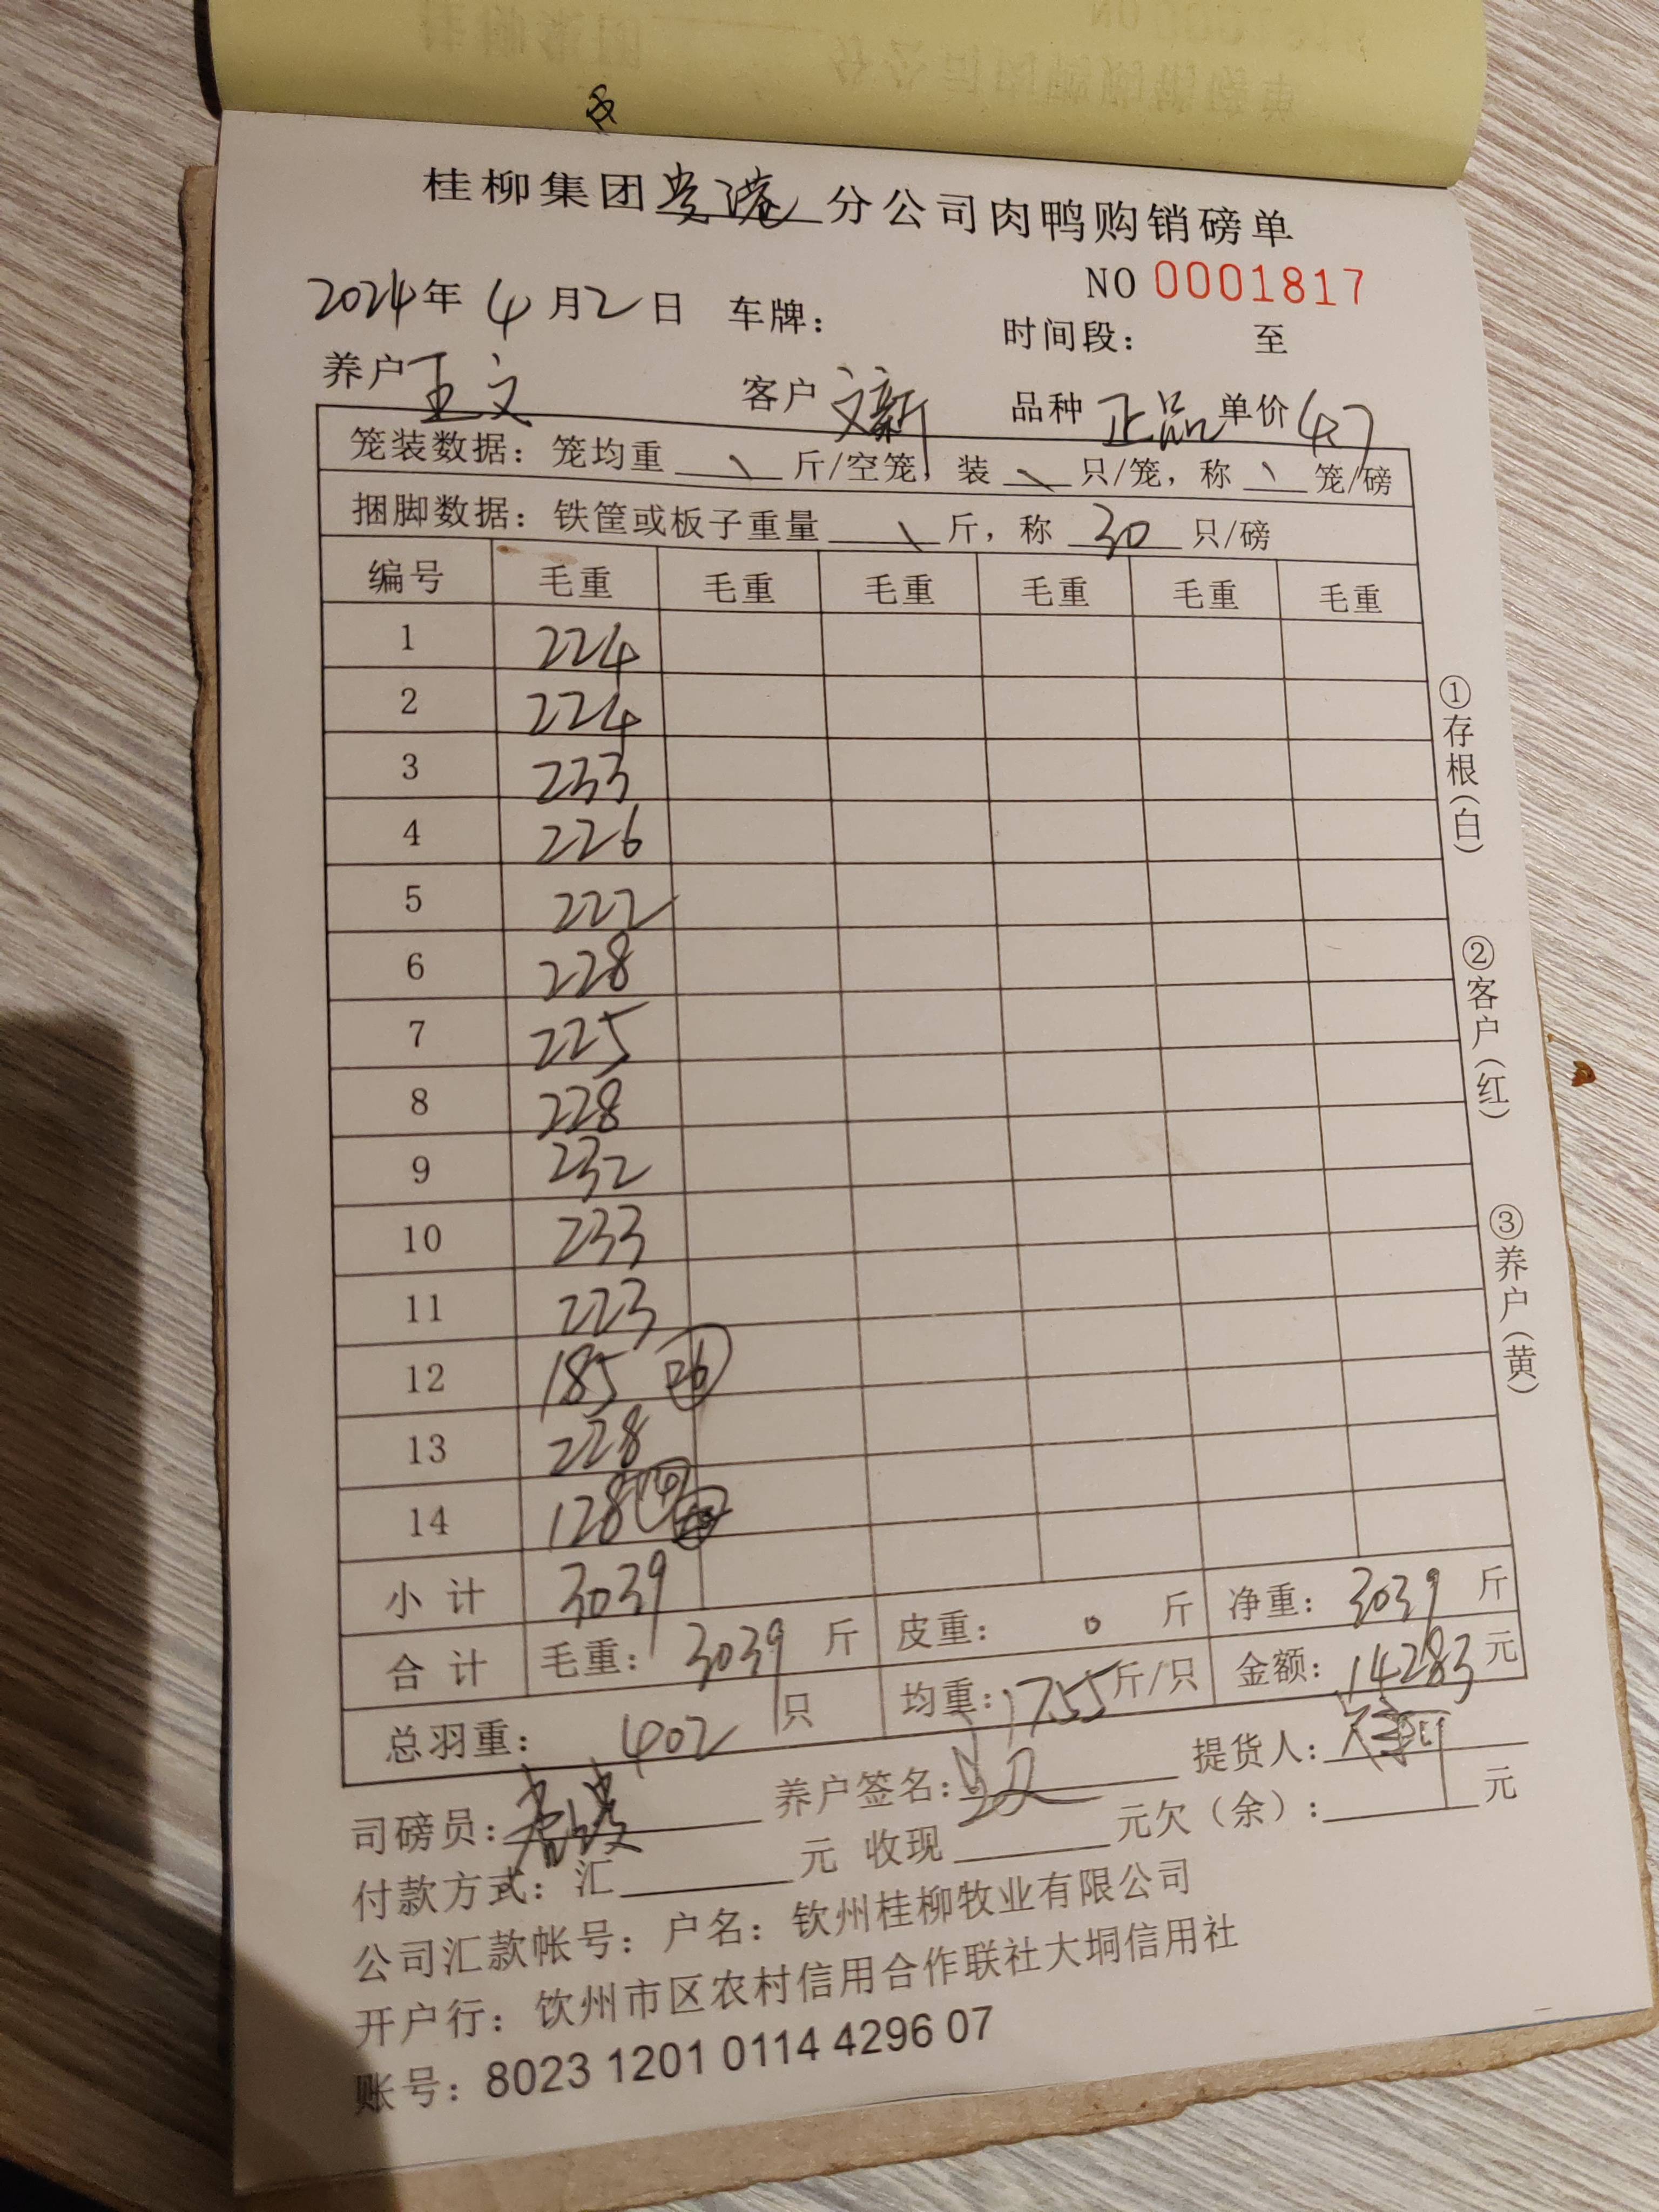 桂柳集团贵港分公司肉鸭购销磅单
NO 0001817
2024年 4月2日 车牌： 时间段： 至
养户 王文 客户 文新 品种 正品 单价 4.7
笼装数据：笼均重 \ 斤/空笼，装 \ 只/笼，称 \ 笼/磅
捆脚数据：铁筐或板子重量 \ 斤，称 30 只/磅
编号 毛重 毛重 毛重 毛重 毛重 毛重
1 224
2 224
3 233
4 226
5 222
6 228
7 225
8 228
9 232
10 233
11 223
12 185
13 228
14 128
小计 3039
合计 毛重：3039 斤 皮重：0 斤 净重：3039 斤
总羽重：402 只 均重：755 斤/只 金额：14283 元
司磅员： 养户签名： 提货人：
付款方式：汇 元 收现 元欠（余）： 元
公司汇款帐号：户名：钦州桂柳牧业有限公司
开户行：钦州市区农村信用合作联社大垌信用社
账号：8023 1201 0114 4296 07
①存根（白）
②客户（红）
③养户（黄）